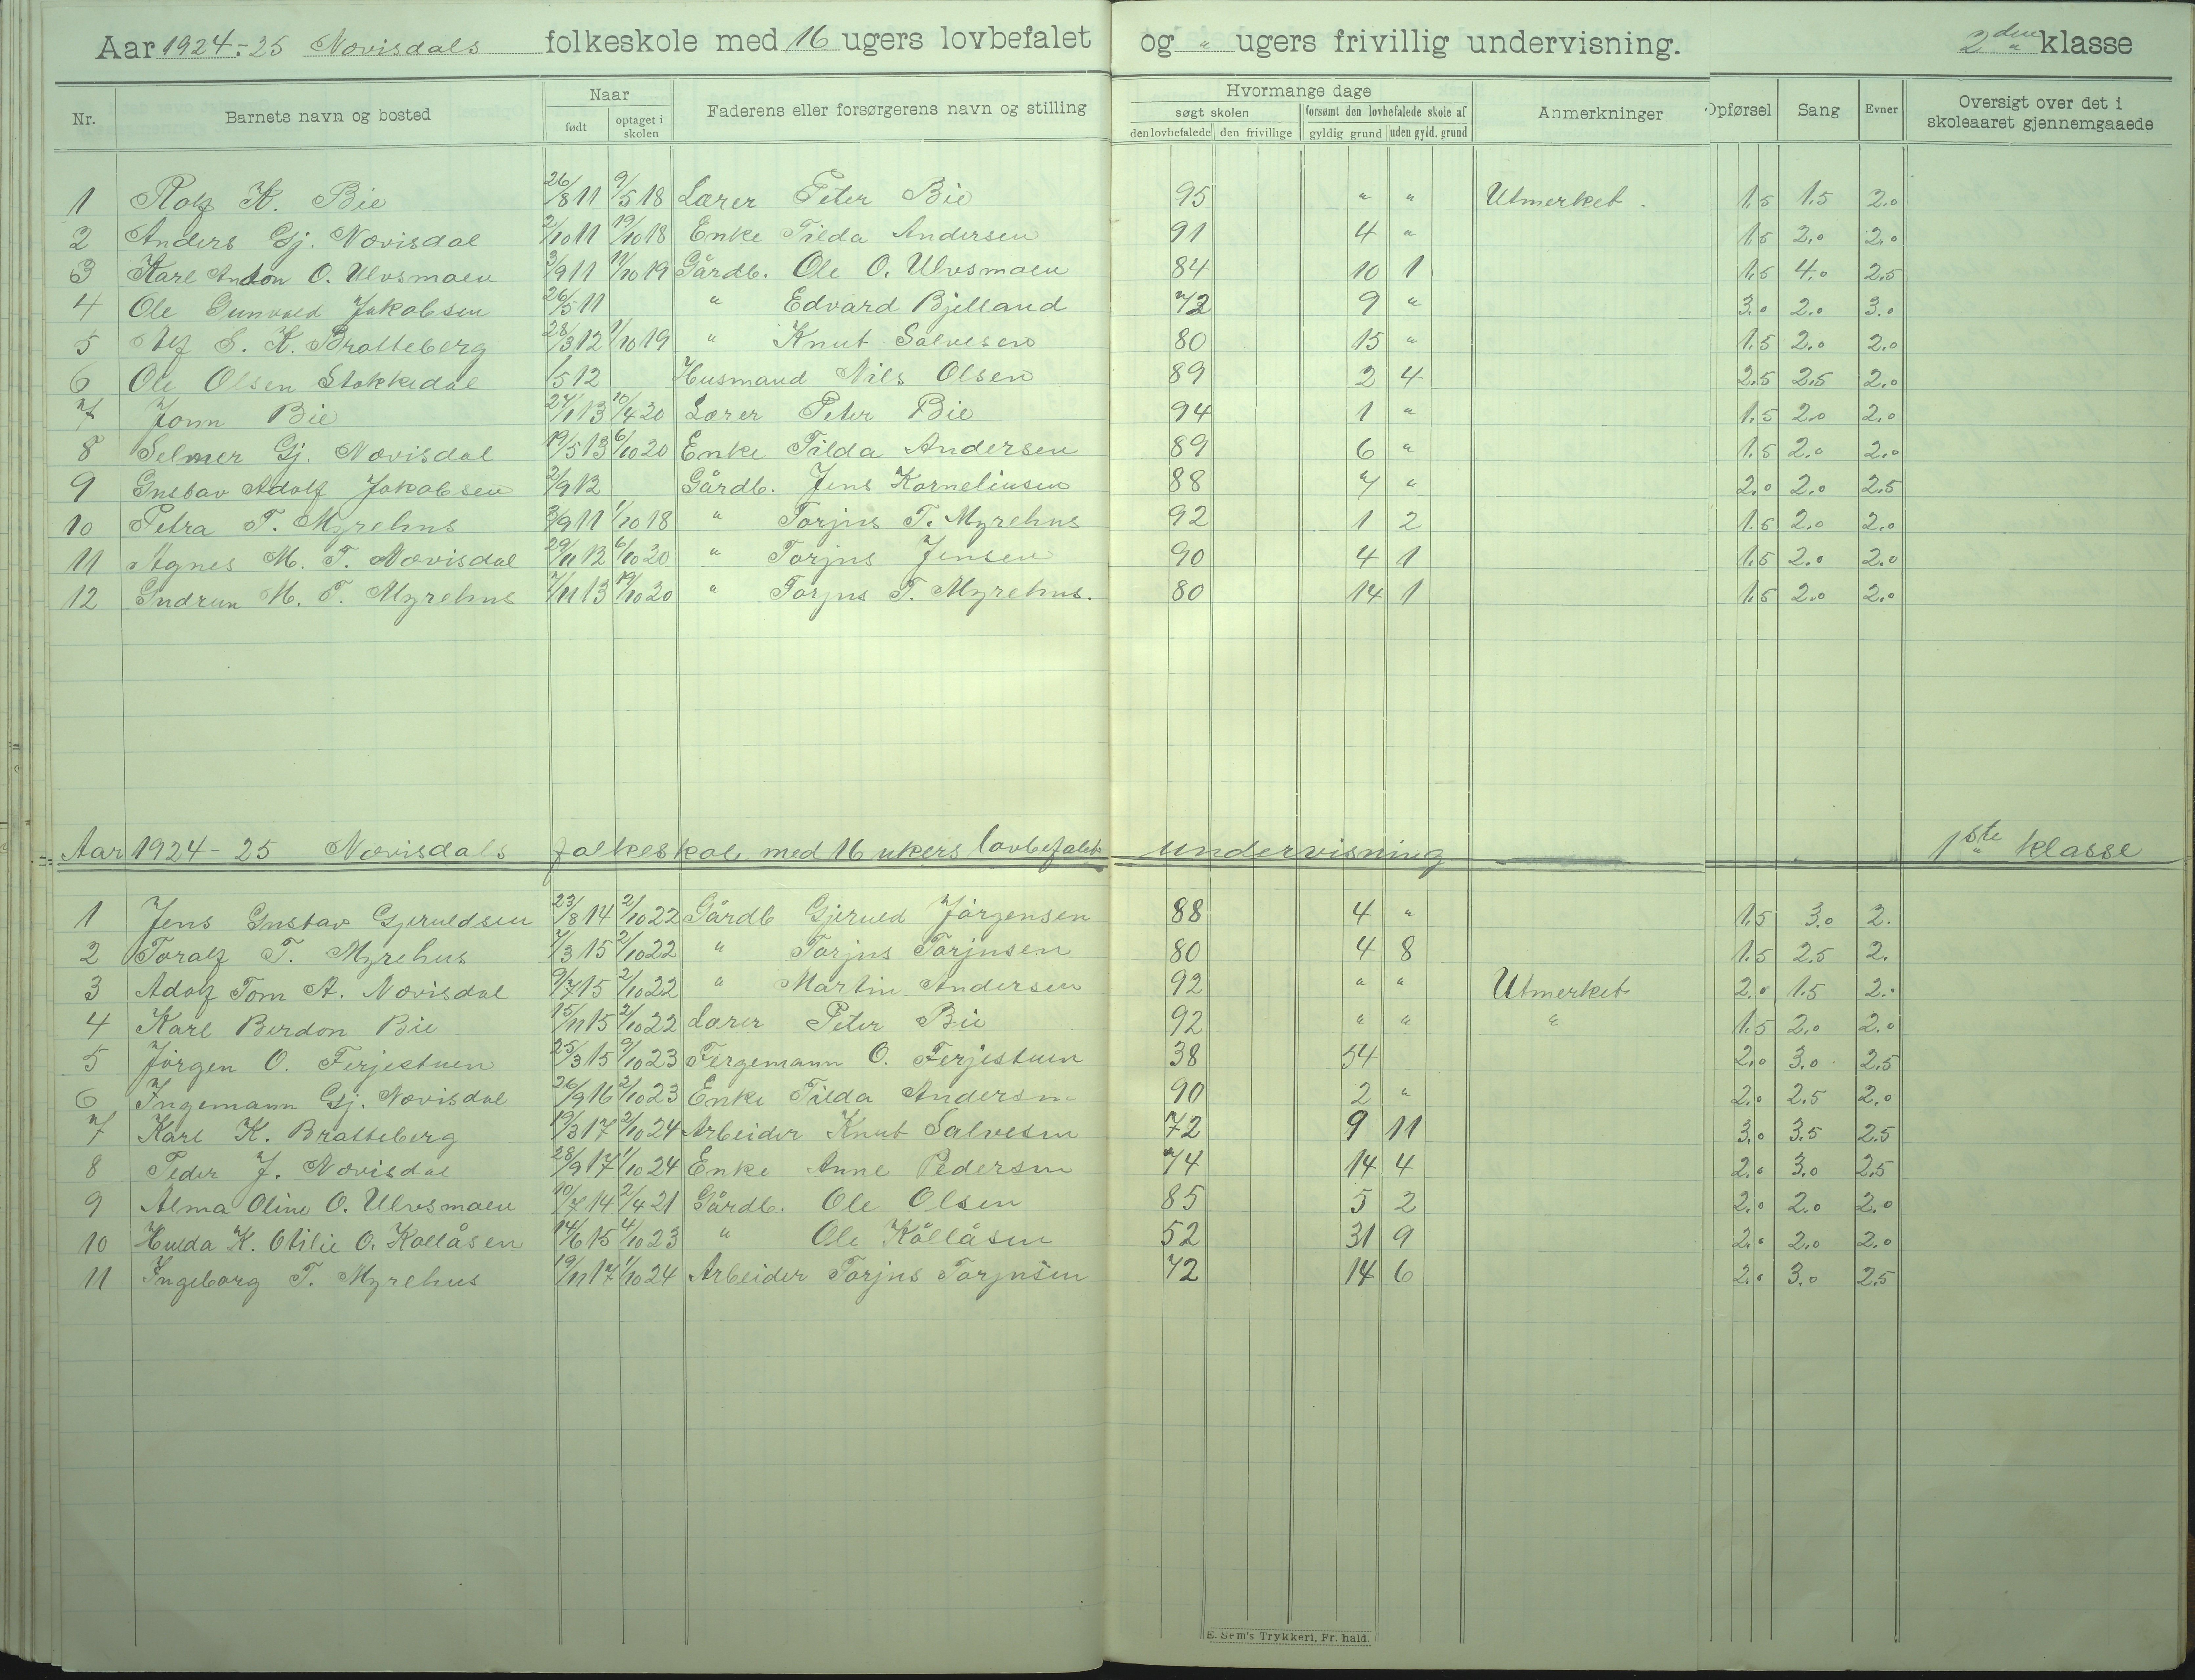 Aar 1924-25 Novisdals folkeskole med 16 ugers lovbefalet og " ugers frivillig undervisning. 2den klasse
Nr. Barnets navn og bosted Naar født optaget i skolen Faderens eller forsørgerens navn og stilling Hvormange dage søgt skolen den lovbefalede den frivillige forsømt den lovbefalede skole af gyldig grund uden gyld. grund Anmerkninger Opførsel Sang Evner Oversigt over det i skoleaaret gjennemgaaede
1 Rolf K. Bie 26/8 11 9/5 18 Lærer Peter Bie 95 " " Utmerket. 1.5 1.5 2.0
2 Anders Gj. Novisdal 2/10 11 19/10 18 Enke Tilda Andersen 91 4 " 1.5 2.0 2.0
3 Karl Anton O. Ulvsmoen 3/9 11 11/10 19 Gårdb. Ole O. Ulvsmoen 84 10 1 1.5 4.0 2.5
4 Ole Gunvald Jakobsen 26/5 11 " Edvard Bjelland 72 9 " 3.0 2.0 3.0
5 Alf S. K. Bratteberg 28/3 12 1/10 19 " Knut Salvesen 80 15 " 1.5 2.0 2.0
6 Ole Olsen Stokkedal 1/5 12 Husmand Nils Olsen 89 2 4 2.5 2.5 2.0
7 Jonn Bie 24/1 13 10/4 20 Lærer Peter Bie 94 1 " 1.5 2.0 2.0
8 Selmer Gj. Novisdal 19/5 13 6/10 20 Enke Tilda Andersen 89 6 " 1.5 2.0 2.0
9 Gustav Adolf Jakobsen 2/9 12 Gårdb. Jens Korneliusen 88 7 " 2.0 2.0 2.5
10 Petra T. Myrehus 3/9 11 1/10 18 " Torjus T. Myrehus 92 1 2 1.5 2.0 2.0
11 Agnes M. T. Novisdal 29/11 12 6/10 20 " Torjus Jensen 90 4 1 1.5 2.0 2.0
12 Gudrun M. T. Myrehus 7/11 13 19/10 20 " Torjus T. Myrehus. 80 14 1 1.5 2.0 2.0
Aar 1924-25 Novisdals folkeskole med 16 ukers lovbefalet undervisning 1ste klasse
1 Jens Gustav Gjeruldsen 23/8 14 2/10 22 Gårdb Gjeruld Jørgensen 88 4 " 1.5 3.0 2.
2 Toralf T. Myrehus 7/3 15 2/10 22 " Torjus Torjusen 80 4 8 1.5 2.5 2.
3 Adolf Tom A. Novisdal 9/7 15 2/10 22 " Martin Andersen 92 " " Utmerket 2.0 1.5 2.0
4 Karl Berdon Bie 15/11 15 2/10 22 Lærer Peter Bie 92 " " " 1.5 2.0 2.0
5 Jörgen O. Ferjestuen 25/3 15 9/10 23 Fergemann O. Ferjestuen 38 54 2.0 3.0 2.5
6 Ingemann Gj. Novisdal 26/9 16 2/10 23 Enke Tilda Andersen 90 2 " 2.0 2.5 2.0
7 Karl K. Bratteberg 19/3 17 2/10 24 Arbeider Knut Salvesen 72 9 11 3.0 3.5 2.5
8 Peder J. Novisdal 28/9 17 1/10 24 Enke Anne Pedersen 74 14 4 2.0 3.0 2.5
9 Alma Oline O. Ulvsmoen 10/7 14 2/4 21 Gårdb. Ole Olsen 85 5 2 2.0 2.0 2.0
10 Hulda K. Otilie O. Kollåsen 14/6 15 4/10 23 " Ole Kållåsen 52 31 9 2.0 2.0 2.0
11 Ingeborg T. Myrehus 19/11 17 1/10 24 Arbeider Torjus Torjusen 72 14 6 2.0 3.0 2.5
E. Sem's Trykkeri, Fr. hald.